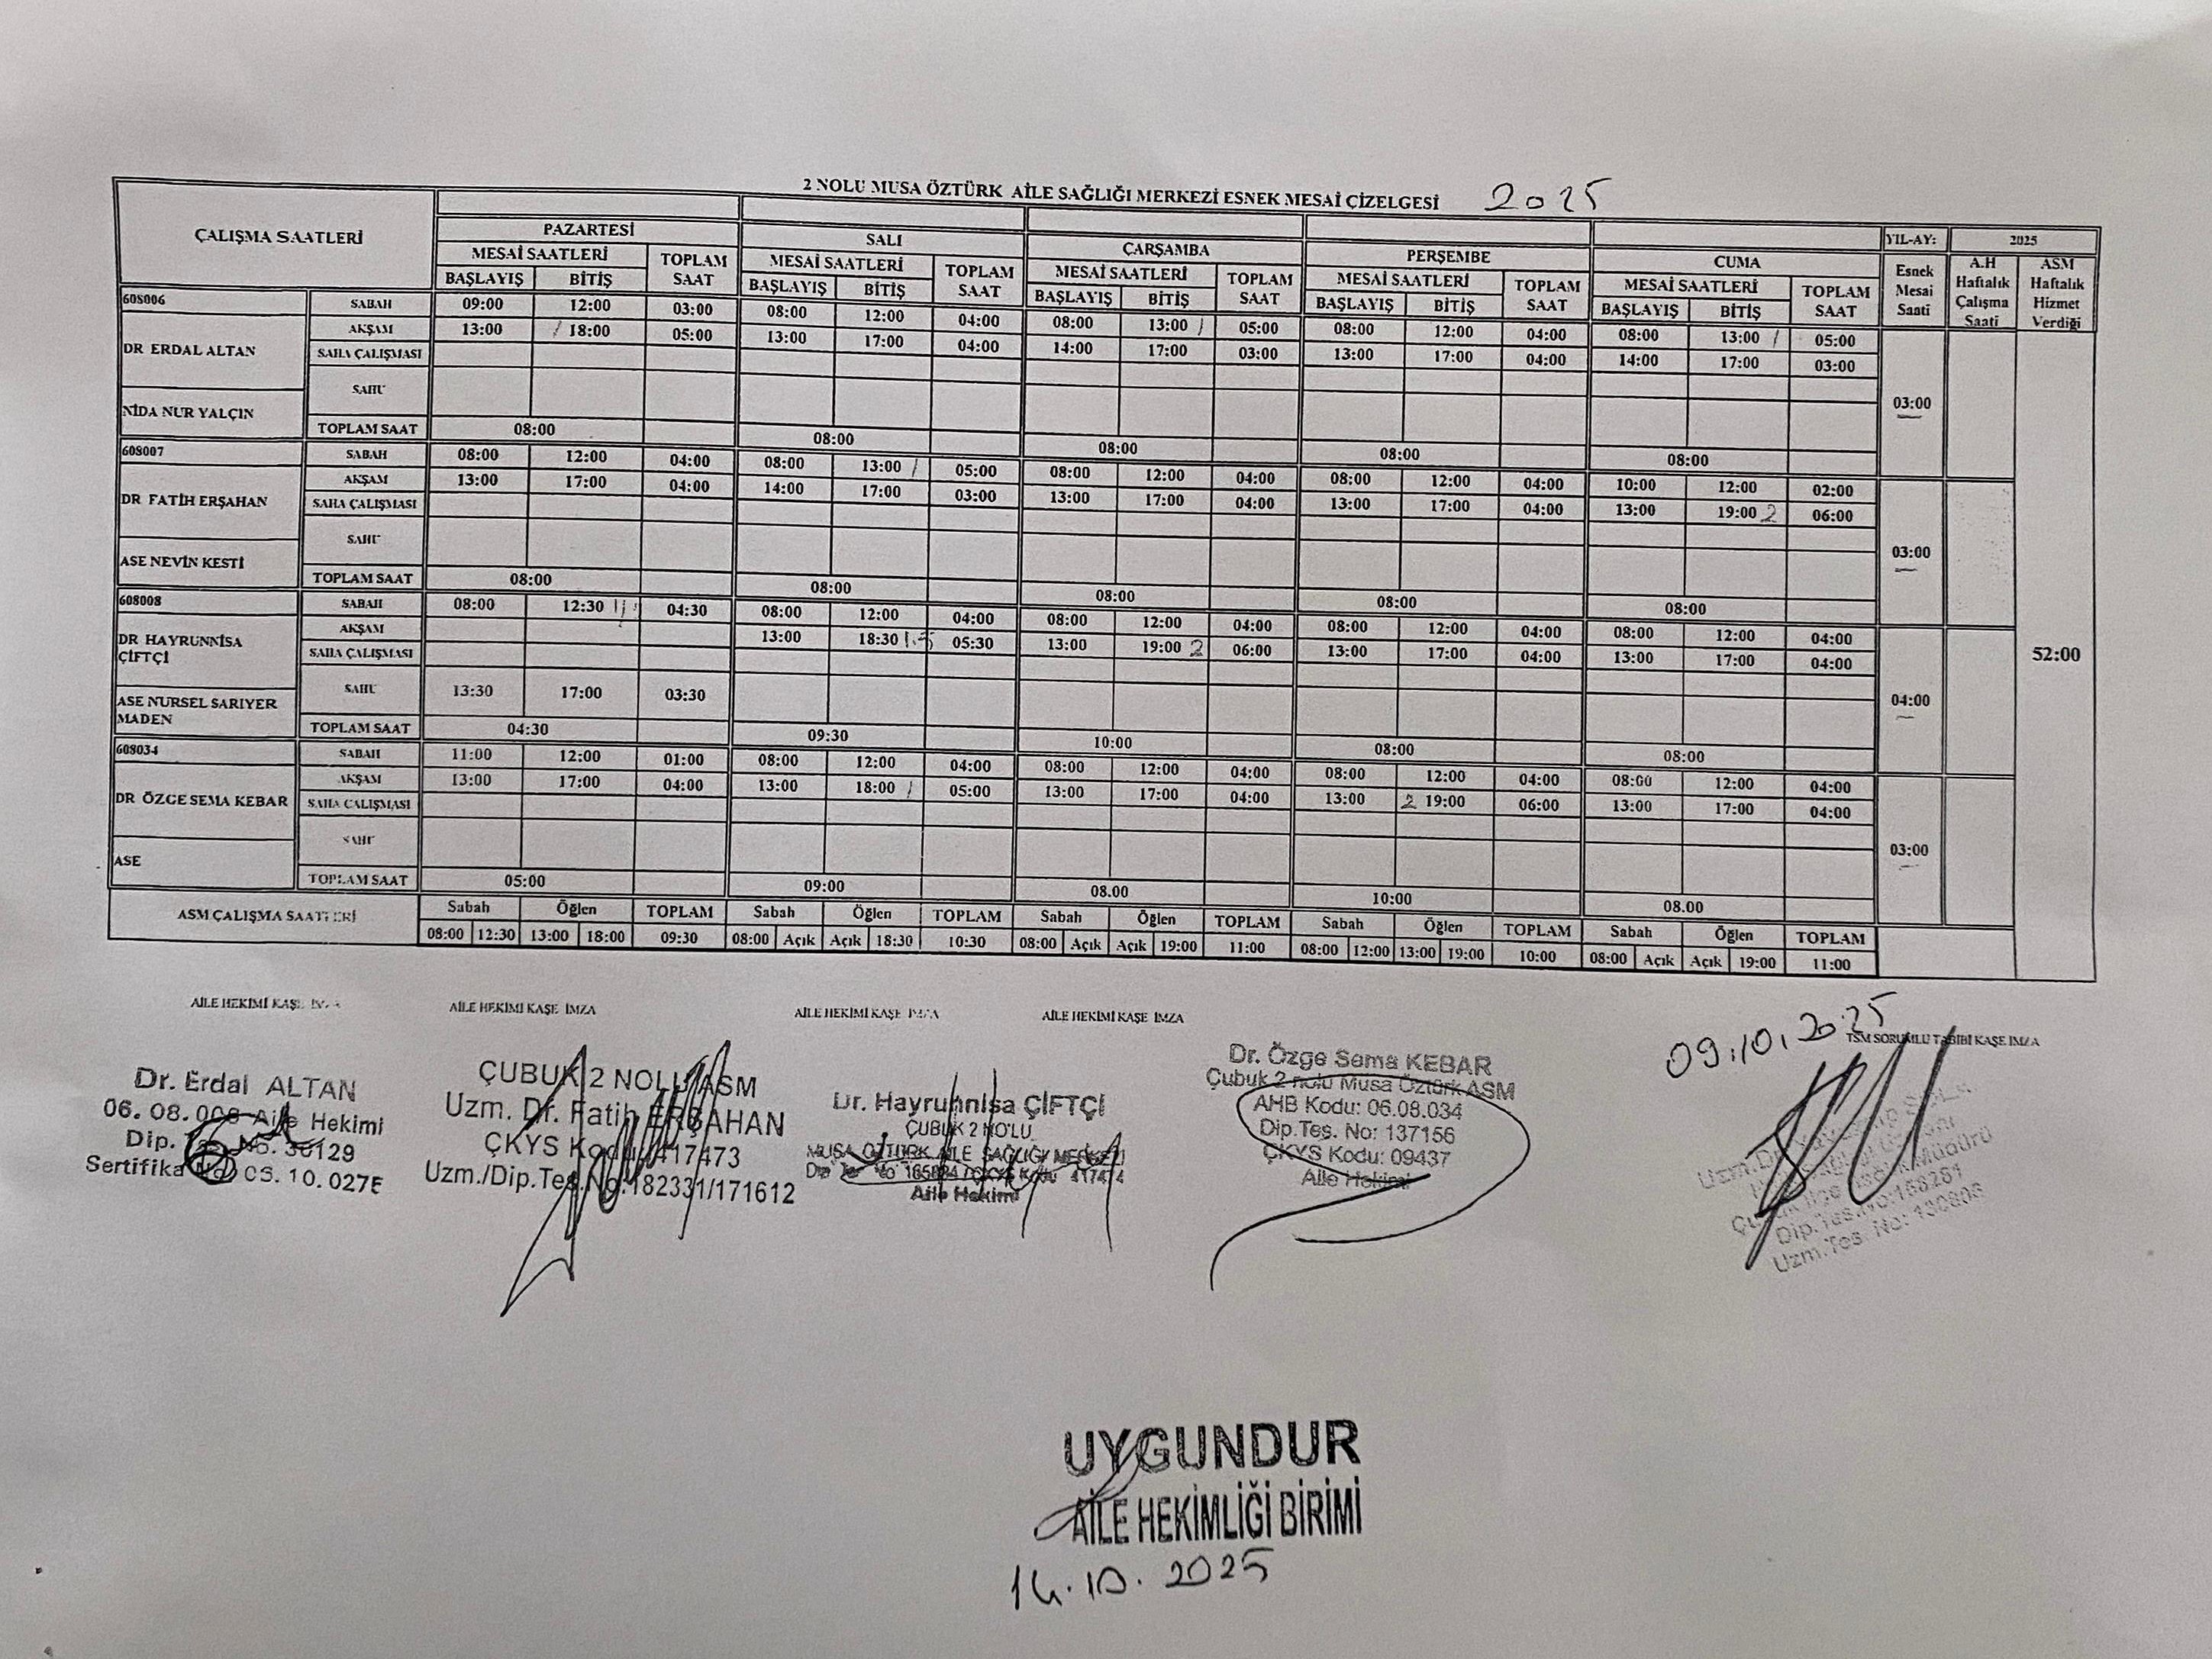 2 NOLU MUSA ÖZTÜRK AİLE SAĞLIĞI MERKEZİ ESNEK MESAİ ÇİZELGESİ 2025
ÇALIŞMA SAATLERİ PAZARTESİ SALI ÇARŞAMBA PERŞEMBE CUMA YIL-AY: 2025
MESAİ SAATLERİ TOPLAM SAAT MESAİ SAATLERİ TOPLAM SAAT MESAİ SAATLERİ TOPLAM SAAT MESAİ SAATLERİ TOPLAM SAAT MESAİ SAATLERİ TOPLAM SAAT Esnek Mesai Saati A.H Haftalık Çalışma Saati ASM Haftalık Hizmet Verdiği
BAŞLAYIŞ BİTİŞ BAŞLAYIŞ BİTİŞ BAŞLAYIŞ BİTİŞ BAŞLAYIŞ BİTİŞ BAŞLAYIŞ BİTİŞ
608006 SABAH 09:00 12:00 03:00 08:00 12:00 04:00 08:00 13:00 / 05:00 08:00 12:00 04:00 08:00 13:00 / 05:00
DR ERDAL ALTAN AKŞAM 13:00 / 18:00 05:00 13:00 17:00 04:00 14:00 17:00 03:00 13:00 17:00 04:00 14:00 17:00 03:00
SAHA ÇALIŞMASI
SAHU 03:00
NİDA NUR YALÇIN
TOPLAM SAAT 08:00 08:00 08:00 08:00 08:00
608007 SABAH 08:00 12:00 04:00 08:00 13:00 / 05:00 08:00 12:00 04:00 08:00 12:00 04:00 10:00 12:00 02:00
DR FATİH ERŞAHAN AKŞAM 13:00 17:00 04:00 14:00 17:00 03:00 13:00 17:00 04:00 13:00 17:00 04:00 13:00 19:00 2 06:00
SAHA ÇALIŞMASI
SAHU 03:00
ASE NEVİN KESTİ
TOPLAM SAAT 08:00 08:00 08:00 08:00 08:00
608008 SABAH 08:00 12:30 04:30 08:00 12:00 04:00 08:00 12:00 04:00 08:00 12:00 04:00 08:00 12:00 04:00
DR HAYRUNNİSA ÇİFTÇİ AKŞAM 13:00 18:30 1.5 05:30 13:00 19:00 2 06:00 13:00 17:00 04:00 13:00 17:00 04:00
SAHA ÇALIŞMASI 52:00
SAHU 13:30 17:00 03:30 04:00
ASE NURSEL SARIYER MADEN
TOPLAM SAAT 04:30 09:30 10:00 08:00 08:00
608034 SABAH 11:00 12:00 01:00 08:00 12:00 04:00 08:00 12:00 04:00 08:00 12:00 04:00 08:00 12:00 04:00
DR ÖZGE SEMA KEBAR AKŞAM 13:00 17:00 04:00 13:00 18:00 / 05:00 13:00 17:00 04:00 13:00 2 19:00 06:00 13:00 17:00 04:00
SAHA ÇALIŞMASI
SAHU 03:00
ASE
TOPLAM SAAT 05:00 09:00 08.00 10:00 08.00
ASM ÇALIŞMA SAATLERİ Sabah Öğlen TOPLAM Sabah Öğlen TOPLAM Sabah Öğlen TOPLAM Sabah Öğlen TOPLAM Sabah Öğlen TOPLAM
08:00 12:30 13:00 18:00 09:30 08:00 Açık Açık 18:30 10:30 08:00 Açık Açık 19:00 11:00 08:00 12:00 13:00 19:00 10:00 08:00 Açık Açık 19:00 11:00
AİLE HEKİMİ KAŞE İMZA AİLE HEKİMİ KAŞE İMZA AİLE HEKİMİ KAŞE İMZA AİLE HEKİMİ KAŞE İMZA
09.10.2025
TSM SORUMLU TABİBİ KAŞE İMZA
Dr. Erdal ALTAN
06.08.006 Aile Hekimi
Dip. Tes. No. 36129
Sertifika No: CS.10.027E
ÇUBUK 2 NOLU ASM
Uzm. Dr. Fatih ERŞAHAN
ÇKYS Kodu: 417473
Uzm./Dip.Tes.No:182331/171612
Dr. Hayrunnisa ÇİFTÇİ
ÇUBUK 2 NOLU
MUSA ÖZTÜRK AİLE SAĞLIĞI MERKEZİ
Aile Hekimi
Dr. Özge Sema KEBAR
Çubuk 2 nolu Musa Öztürk ASM
AHB Kodu: 06.08.034
Dip.Tes. No: 137156
ÇKYS Kodu: 09437
Aile Hekimi
Uzm.Dr.
Dip.Tes.No:
Uzm.Tes. No:
UYGUNDUR
AİLE HEKİMLİĞİ BİRİMİ
14.10.2025